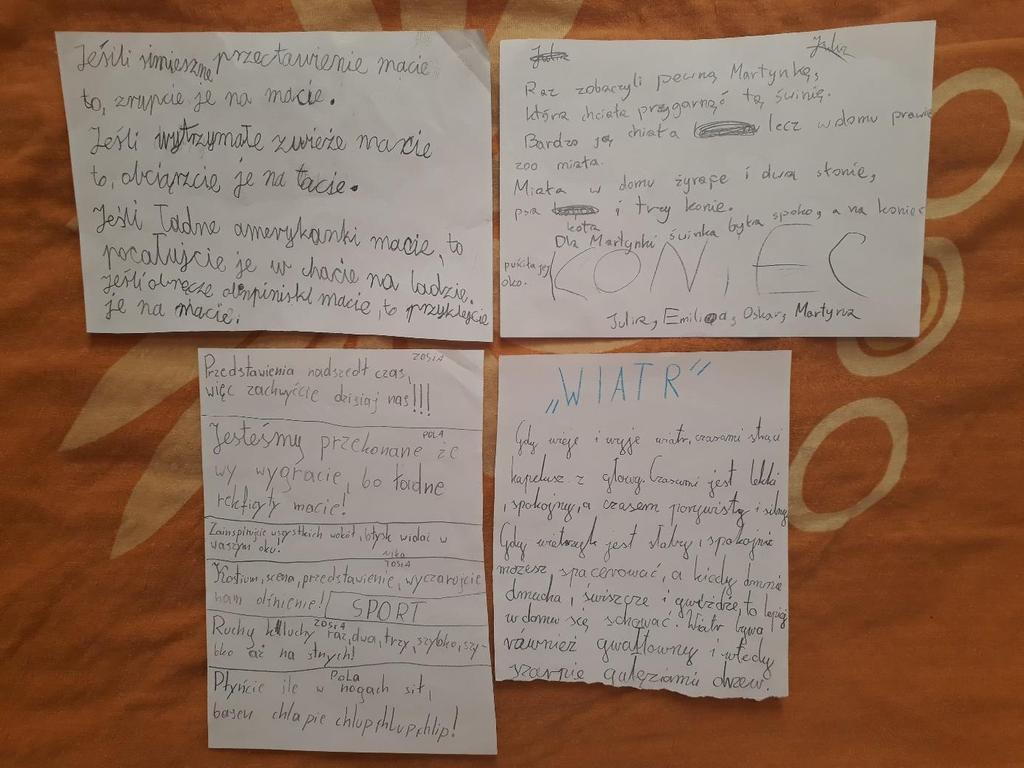 Jeśili śmieszne przectawienie macie
to, zrupcie je na macie.
Jeśli wytrzymałe zwieże macie
to, obciąrzcie je na tacie.
Jeśli Ładne amerykanki macie, to
pocałujcie je w chacie na ladzie.
Jeśli obręcze olinpiniskI macie, to przyklejcie
je na macie.
Julia
Julia
Raz zobaczyli pewną Martynkę,
która chciała przygarnąć tę świnię.
Bardzo ją chiała lecz w domu prawie
zoo miała.
Miała w domu żyrafę i dwa słonie,
psa kota i trzy konie.
Dla Martynki świnka była spoko, a na koniec
puściła jej
oko.
KONIEC
Julia, Emilia, Oskar, Martyna
ZOSIA
Przedstawienia nadszedł czas,
więc zachwyćcie dzisiaj nas!!!
POLA
Jesteśmy przekonane że
wy wygracie, bo ładne
rekfizyty macie!
Zainspirujcie wszystkich wokół, błysk widać w
waszym oku!
Nika
ZOSIA
Kostium, scena, przedstawienie, wyczarojcie
nam olśnienie!
SPORT
ZOSIA
Ruchy kluchy raz, dwa, trzy, szybko, szy-
bko aż na strych!
POLA
Płyńcie ile w nogach sił,
basen chlapie chlup, chlup, chlip!
„WIATR”
Gdy wieje i wyje wiatr, czasami strąci
kapelusz z głowy. Czasami jest lekki
, spokojny, a czasem porywisty i silny
Gdy wietrzyk jest słaby i spokojnie
możesz spacerować, a kiedy
dmucha, świszcze i gwiżdże, to lepiej
w domu się schować. Wiatr bywa
ráwnież gwałtowny i wtedy
szarpie gałęziami drzew.